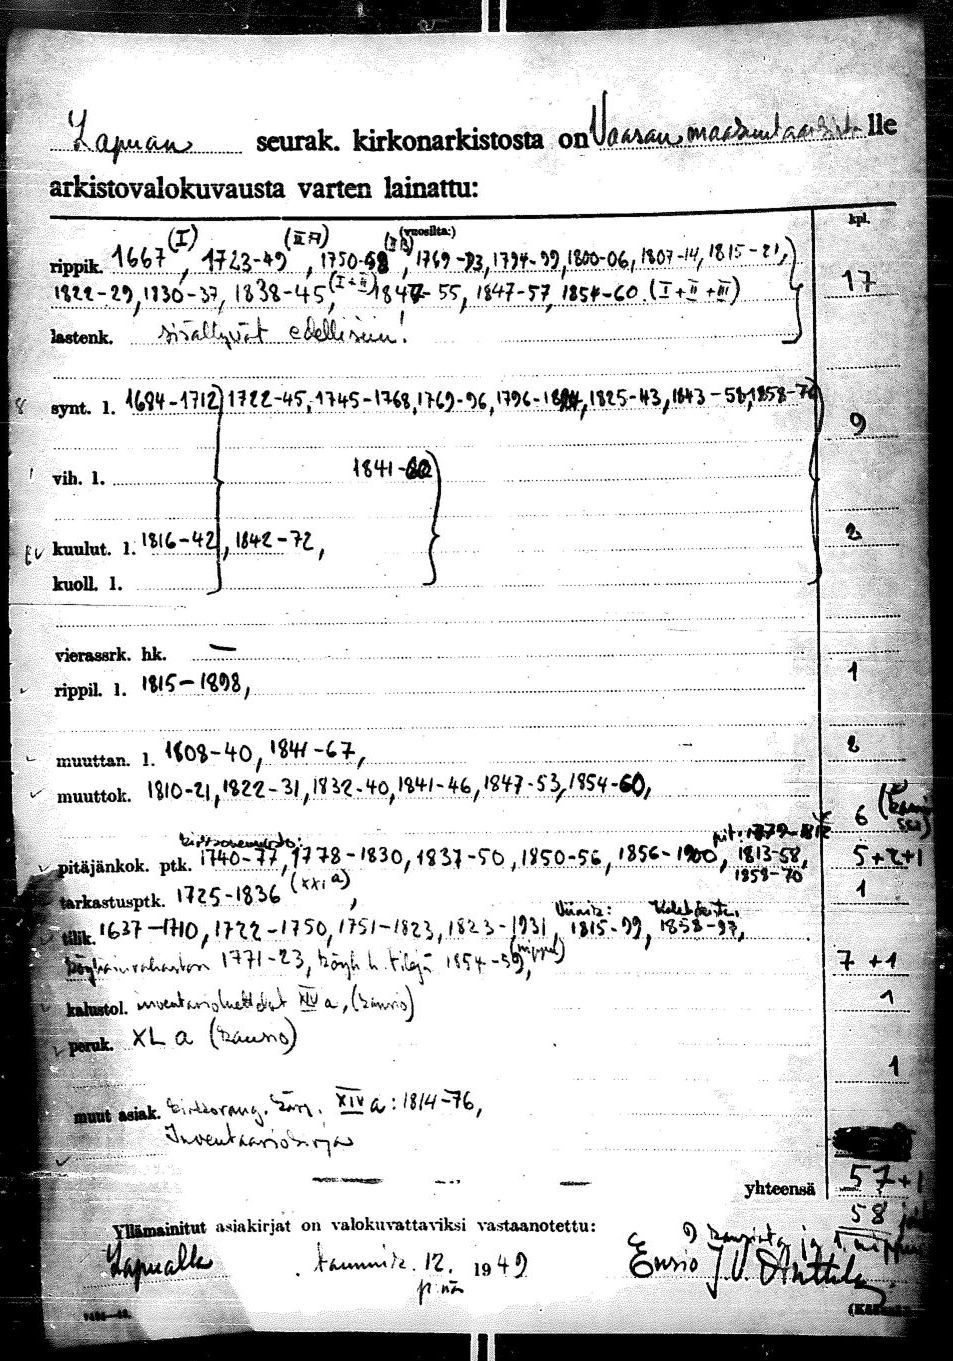 Lapuan seurak. kirkonarkistosta on Vaasan maakunta lle
arkistovalokuvausta varten lainattu:
kpl.
(I) (II A) (vuosilta:)
rippik. 1667, 1723-49, 1750-68, 1769-93, 1794-99, 1800-06, 1807-14, 1815-21,
1822-29, 1830-37, 1838-45, (I+II) 1847-55, 1847-57, 1854-60 (I+II+III) 17
lastenk. sisältyvät edellisiin!
8 synt. l. 1684-1712 1722-45, 1745-1768, 1769-96, 1796-18, 1825-43, 1843-58, 1858-
9
vih. l. 1841-
kuulut. l. 1816-42, 1842-72, 2
kuoll. l.
vierassrk. hk. —
rippil. l. 1815-1898, 1
muuttan. l. 1808-40, 1841-67, 2
muuttok. 1810-21, 1822-31, 1832-40, 1841-46, 1847-53, 1854-60,
6
pitäjänkok. ptk. 1740-77, 1778-1830, 1837-50, 1850-56, 1856-1900, 1813-58, 5+2+1
1858-70
tarkastusptk. 1725-1836 (XXI a), 1
tilik. 1637-1710, 1722-1750, 1751-1823, 1823-1931, 1815-99, 1858-97,
1771-23, 1854-59, 7+1
kalustol. inventarioluettelot XIV a, (kansio) 1
peruk. XL a (kansio)
1
muut asiak. XIV a: 1814-76,
Inventaariokirja
yhteensä 57+1
58
Yllämainitut asiakirjat on valokuvattaviksi vastaanotettu:
Lapualla tammik. 12. 1949
p:nä
Ensio J. V. Anttila